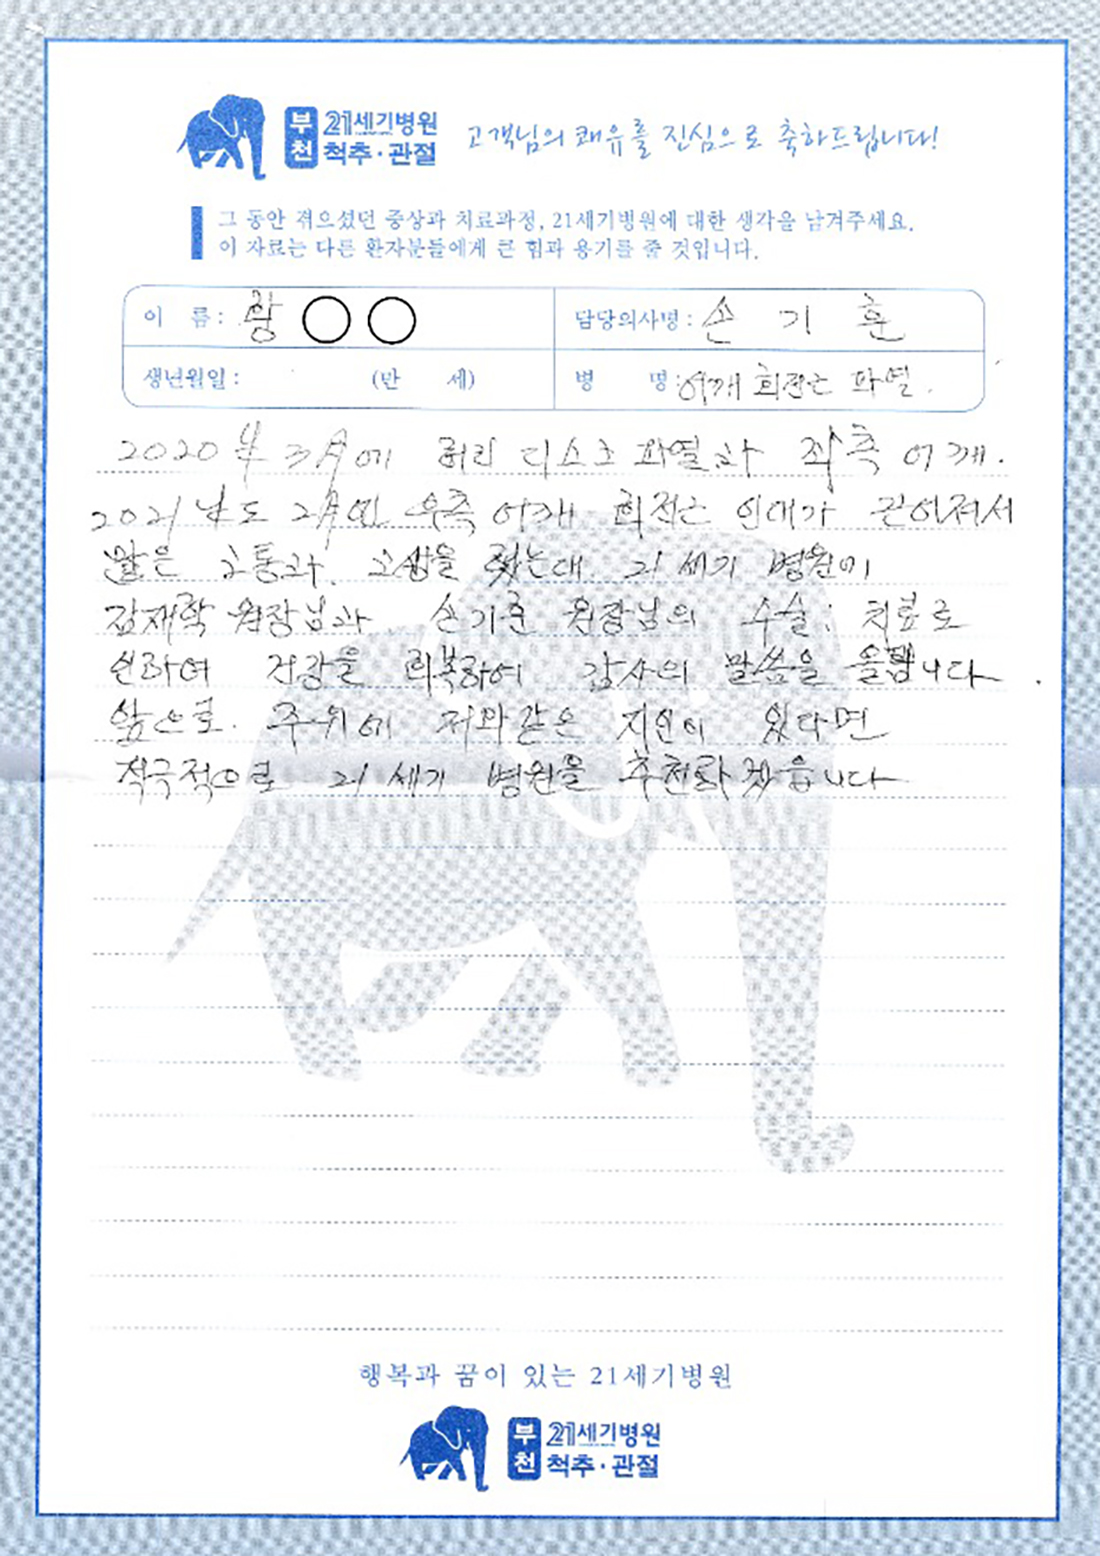 부천 21세기병원 척추·관절
고객님의 쾌유를 진심으로 축하드립니다!
그 동안 겪으셨던 증상과 치료과정, 21세기병원에 대한 생각을 남겨주세요.
이 자료는 다른 환자분들에게 큰 힘과 용기를 줄 것입니다.
이 름 : 황 ○ ○
담당의사명 : 손 기 훈
생년월일 : (만 세)
병 명 : 어깨 회전근 파열.
2020年 3月에 허리 디스크 파열과 좌측 어깨.
2021년도 2月엔 우측 어깨 회전근 인대가 끈어저서
많은 고통과 고생을 했는대 21세기 병원에
김재학 원장님과 손기훈 원장님의 수술: 치료로
인하여 건강을 회복하여 감사의 말씀을 올립니다.
앞으로. 주위에 저와같은 지인이 있다면
적극적으로 21세기 병원을 추천하겠읍니다
행복과 꿈이 있는 21세기병원
부천 21세기병원 척추·관절